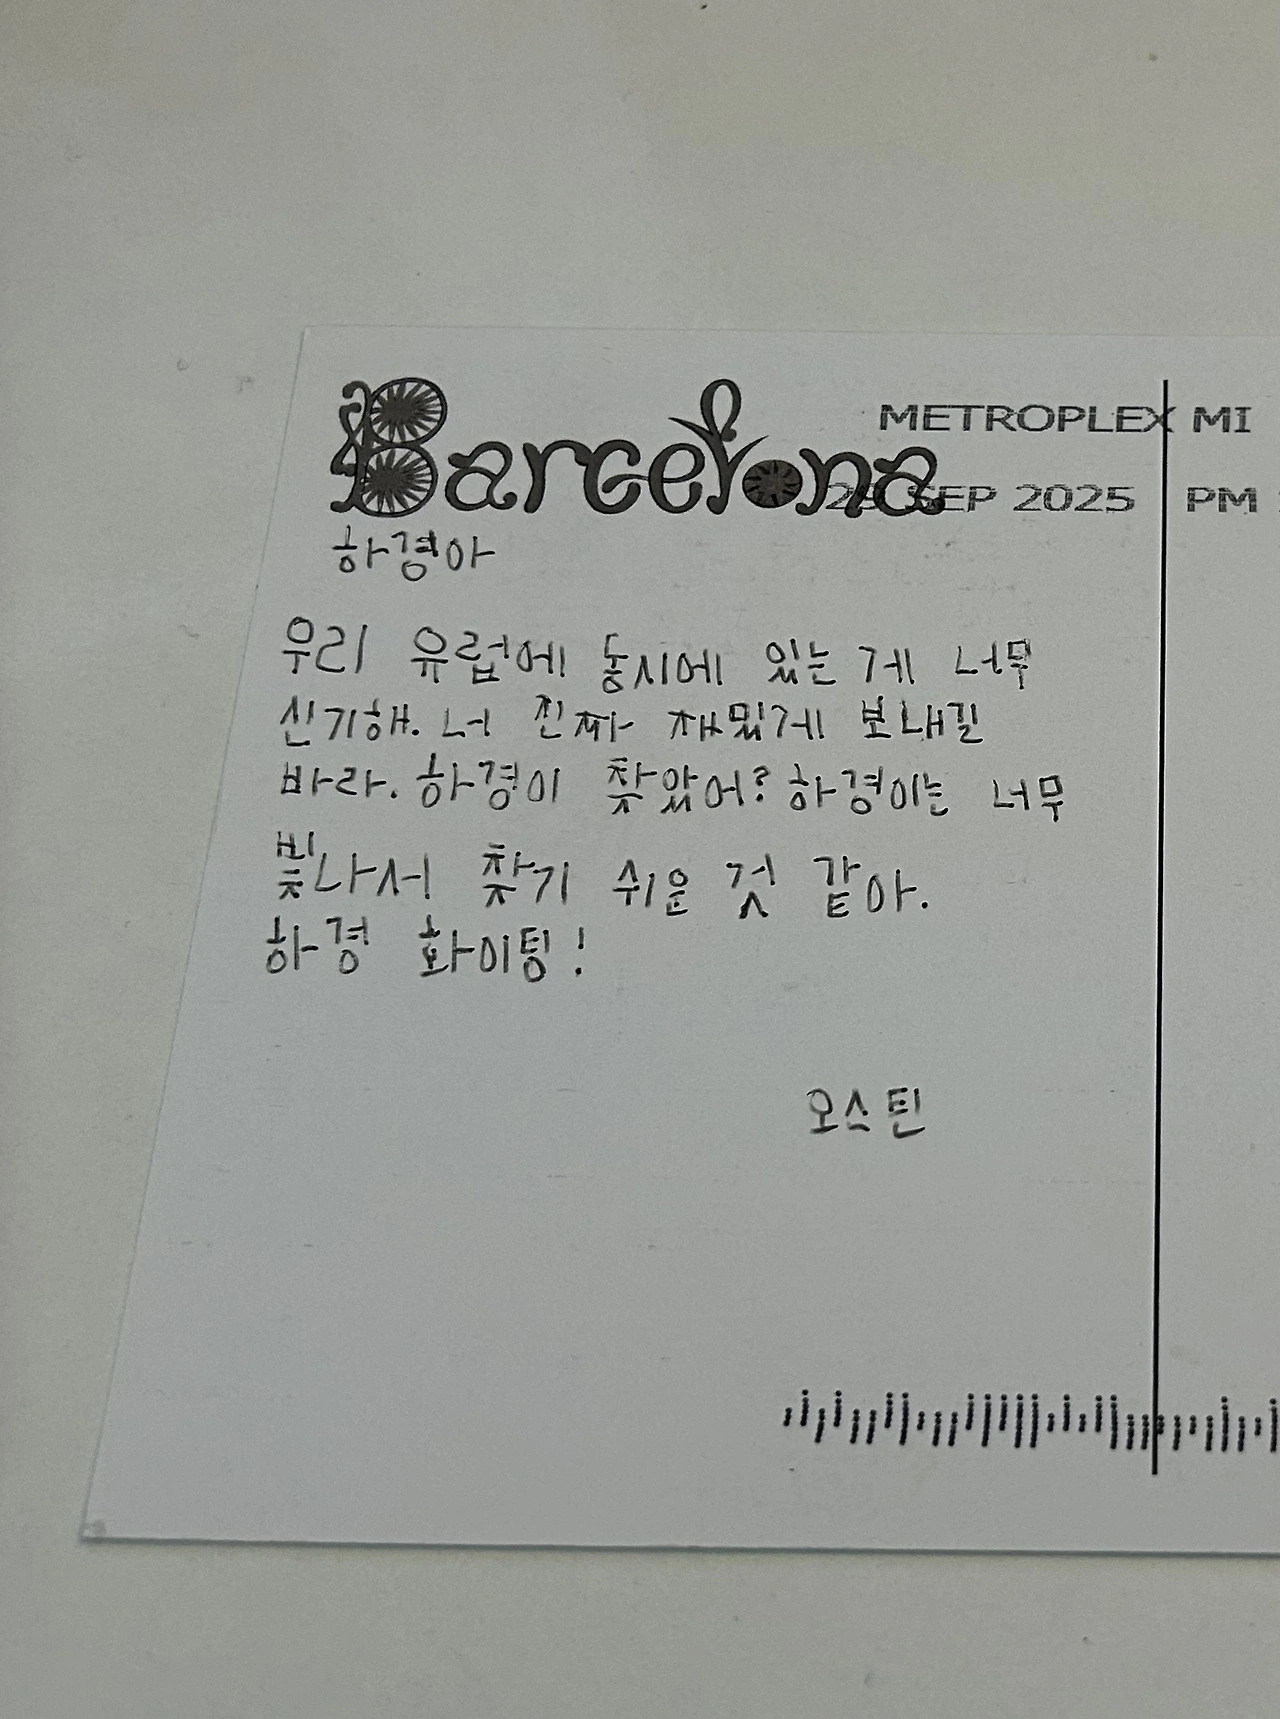 Barcelona
METROPLEX MI
29 SEP 2025 PM
하경아
우리 유럽에 동시에 있는 게 너무
신기해. 너 진짜 재밌게 보내길
바라. 하경이 찾았어? 하경이는 너무
빛나서 찾기 쉬운 것 같아.
하경 화이팅!
오스틴